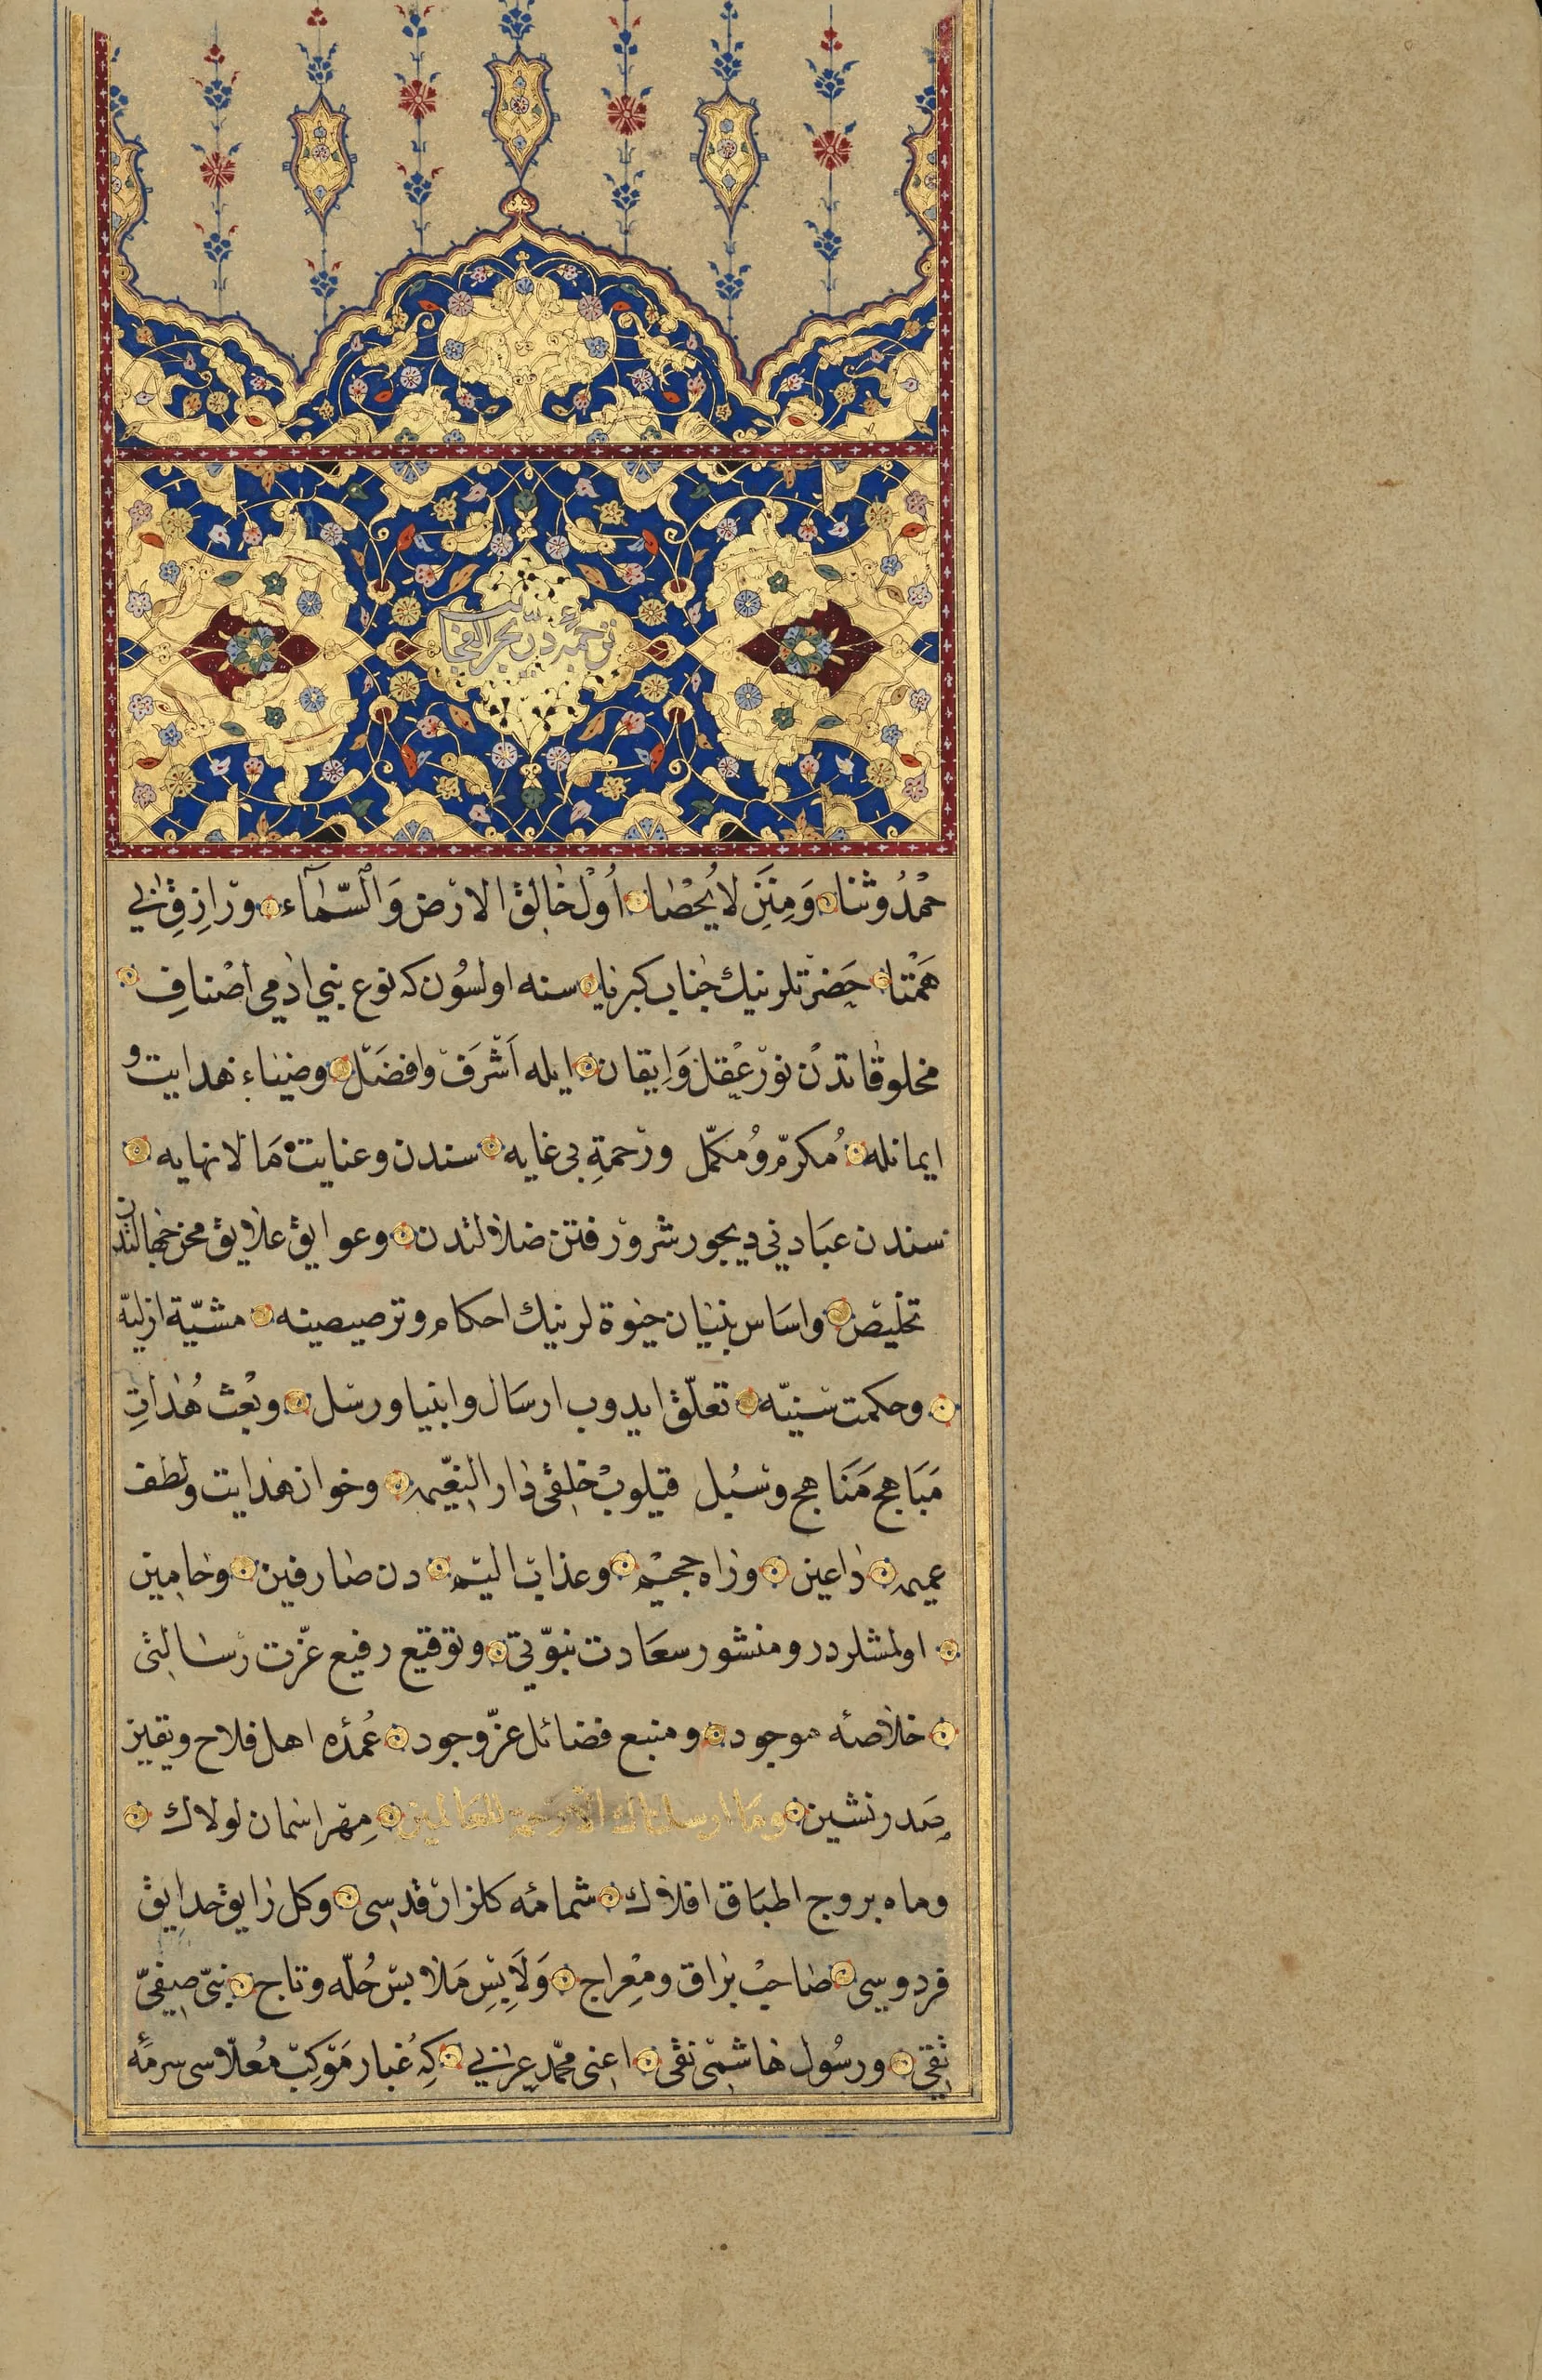 ترجمهٔ درّ بحر الغرائب
حَمْدُ وثنا وَمِنَنِ لايُحْصٰا اُوْل خٰالِقِ الارْضِ وَالسَّمٰآء ورٰازِقِ بٰي
هَمْتٰا حَضْرَتلرينك جٰنابِ كبريٰا سنه اولسُون كه نوع بني اٰدمي اَصْنافِ
مخلوقٰاتدن نورْ عَقل وَاِيقان ايله اَشْرَفْ وافضَل وضيٰاء هدايت و
ايمانله مُكرّم وُمكمّل ورَحمةِ بى غايه سندن وعنايت مَا لا نهايه
سندن عبَادني ديجور شرور فتن ضلٰالتدن وعوايق علايق محن جهالتدن
تخليْص واسَاس بنيٰان حيٰوة لرينك احكام وترصيصينه مشيّة ازليّه
وحكمت سَنيّه تعلّق ايدوب ارسَال وانبيا ورسل وبعْث هُدٰاتِ
مَبَاهج مَنَاهج وسُبُل قيلوبْ خلقى دٰار النعيم وخوان هدايت ولطف
عميمه دٰاعين ورٰاه جحيْم وعذاب اليْم دن صٰارفين وحٰامين
اولمشلردر ومنشور سعَادت نبوّتي وتوقيع رفيع عزّت رسٰالتى
خلٰاصهٔ موجود ومنبع فضائل عزّ وجود عُمدهٔ اهل فلاح ويقين
صَدر نشين ومَا ارسلناك الّا رحمة للعَالمين مِهْر اسْمان لولاك
وماه بروج اطبَاق افلٰاك شمامهٔ كلزار قدسي وكل رٰايق حدايق
فردوسي صٰاحبْ بُرٰاق ومِعْراج وَلَابِسِ مَلٰابسِ حُلّه وتاج نبيّ صفيّ
تقي ورسُول هٰاشمى نقى اعنى محمّد عربي كِه غبار مَوكبِ مُعلّاسى سرمهٔ